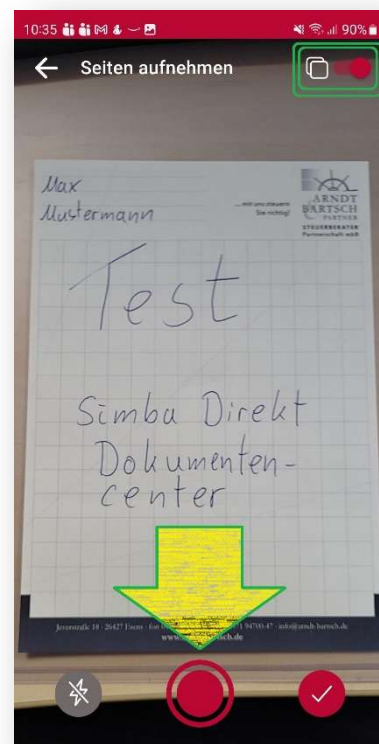 10:35
90%
Seiten aufnehmen
Max
Mustermann
... mit uns steuern
Sie richtig!
ARNDT
BARTSCH
PARTNER
STEUERBERATER
Partnerschaft mbB
Test
Simba Direkt
Dokumenten-
center
Jeverstraße 10 · 26427 Esens
94700-47 · info@arndt-bartsch.de